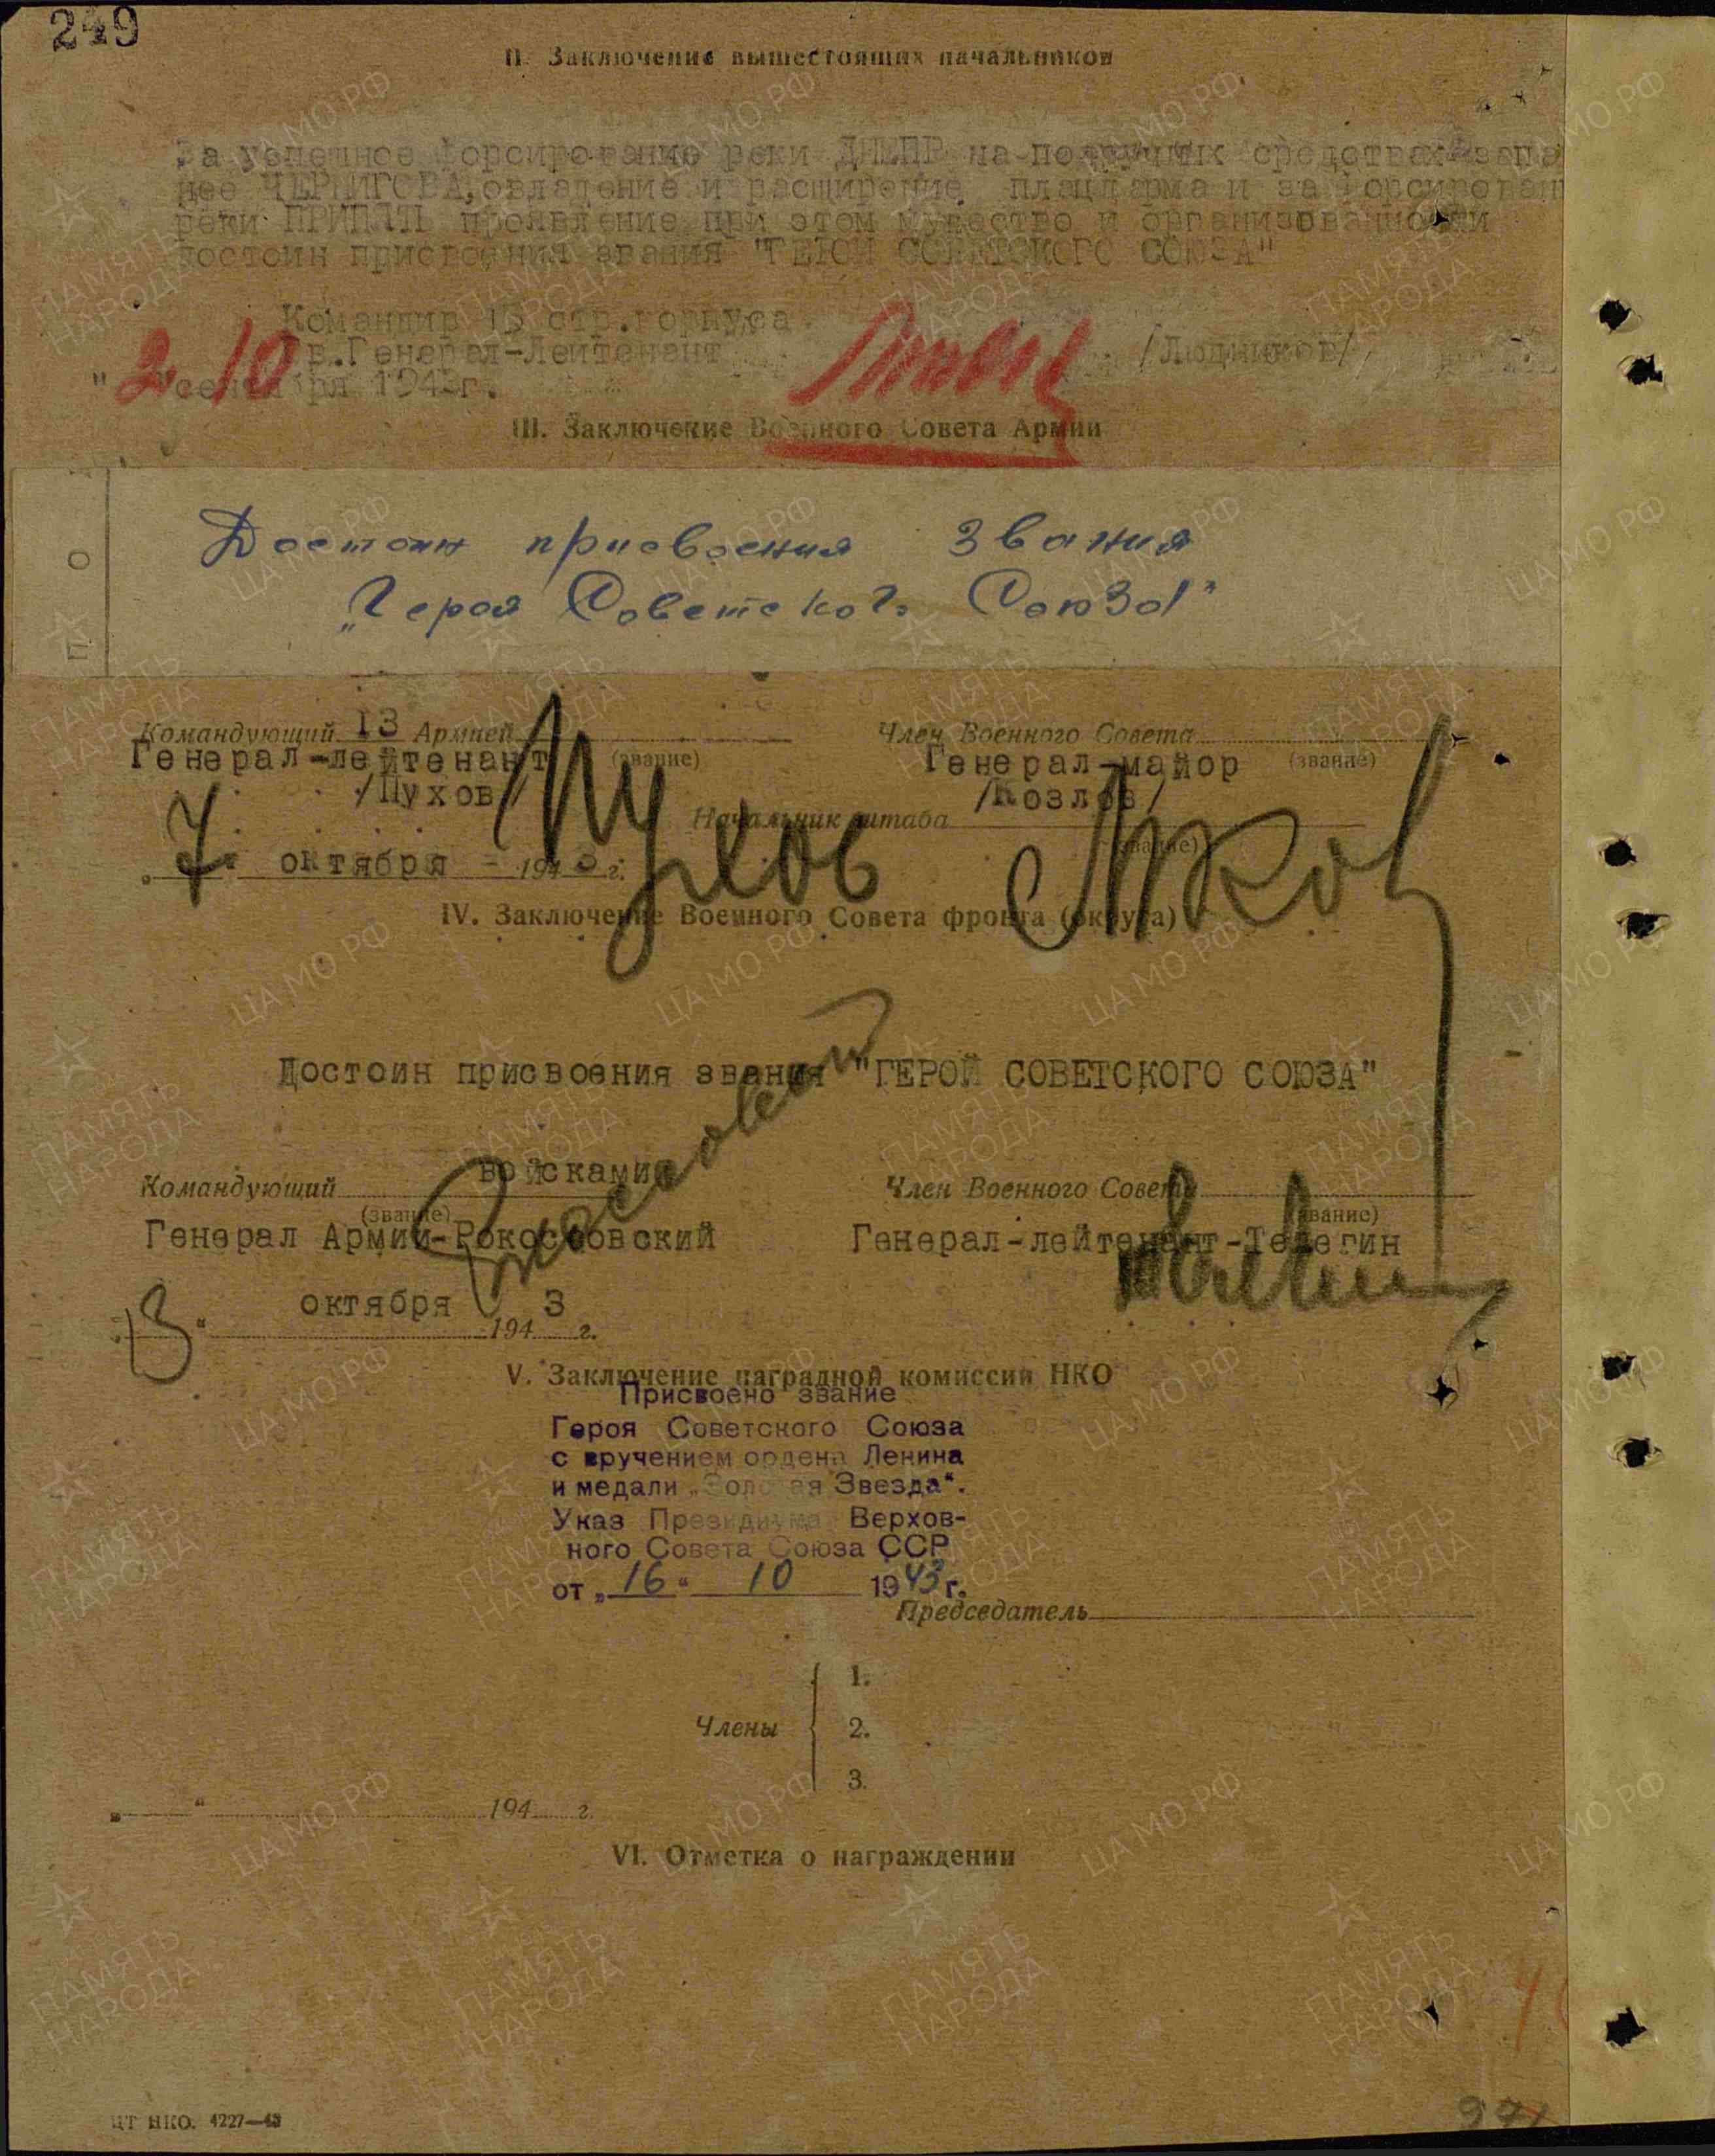 249
II. Заключение вышестоящих начальников
За успешное форсирование реки ДНЕПР на подручных средствах запад
нее ЧЕРНИГОВА, овладение и расширение плацдарма и за форсирован
реки ПРИПЯТЬ проявление при этом мужество и организованности
достоин присвоения звания "ГЕРОЙ СОВЕТСКОГО СОЮЗА"
Командир 15 стр.корпуса
гв.Генерал-Лейтенант /Людников/
" 2 10 сентября 1943г.
III. Заключение Военного Совета Армии
Достоин присвоения звания
„Героя Советского Союза"
Командующий 13 Армией Член Военного Совета
Генерал-лейтенант (звание) Генерал-майор (звание)
/Пухов/ /Козлов/
Начальник штаба
(звание)
„7" октября - 1943 г.
IV. Заключение Военного Совета фронта (округа)
Достоин присвоения звания "ГЕРОЙ СОВЕТСКОГО СОЮЗА"
Командующий войсками Член Военного Совета
(звание) (звание)
Генерал Армии-Рокоссовский Генерал-лейтенант-Телегин
„13" октября 1943 г.
V. Заключение наградной комиссии НКО
Присвоено звание
Героя Советского Союза
с вручением ордена Ленина
и медали „Золотая Звезда".
Указ Президиума Верхов-
ного Совета Союза ССР
от „16" 10 1943 г.
Председатель
1.
Члены 2.
3.
„ " 194 г.
VI. Отметка о награждении
ЦТ НКО. 4227—43